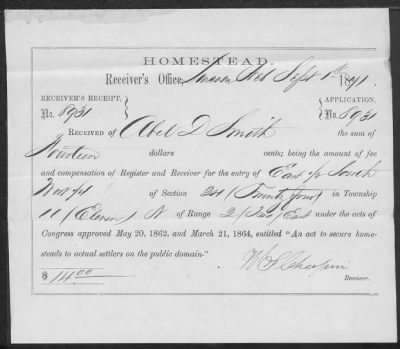 HOMESTEAD.
Receiver's Office, Lincoln Neb Sept 1st 1871.
RECEIVER'S RECEIPT, APPLICATION,
No. 8931 No. 8931
RECEIVED of Abel D Smith the sum of
Fourteen dollars cents; being the amount of fee
and compensation of Register and Receiver for the entry of East 1/2 South
West 1/4 of Section 24 (Twenty four) in Township
11 (Eleven) N of Range 2 (Two) East under the acts of
Congress approved May 20, 1862, and March 21, 1864, entitled "An act to secure home-
steads to actual settlers on the public domain."
$14.00
Receiver.